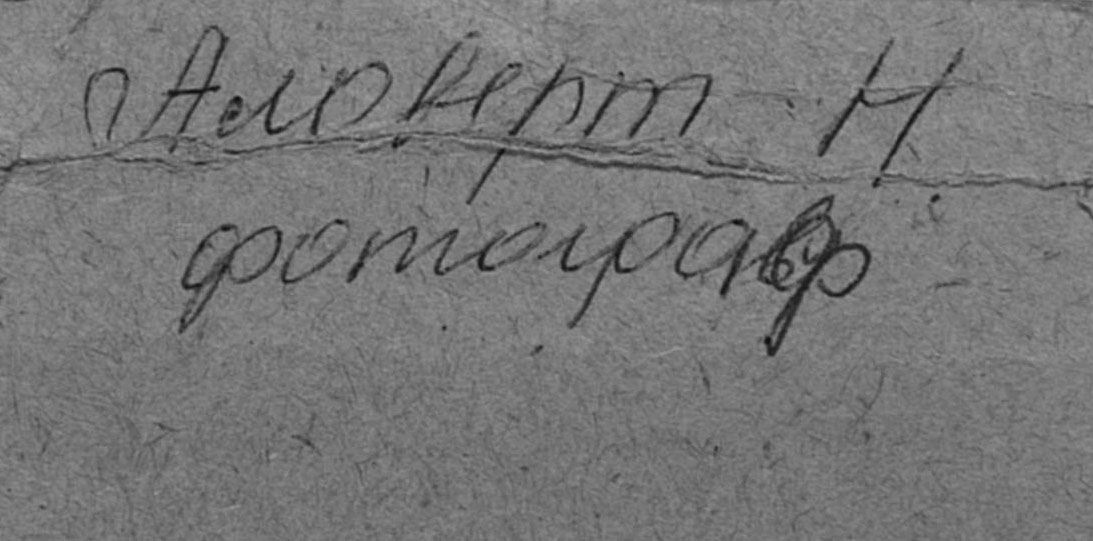 Аловерт Н
фотограф